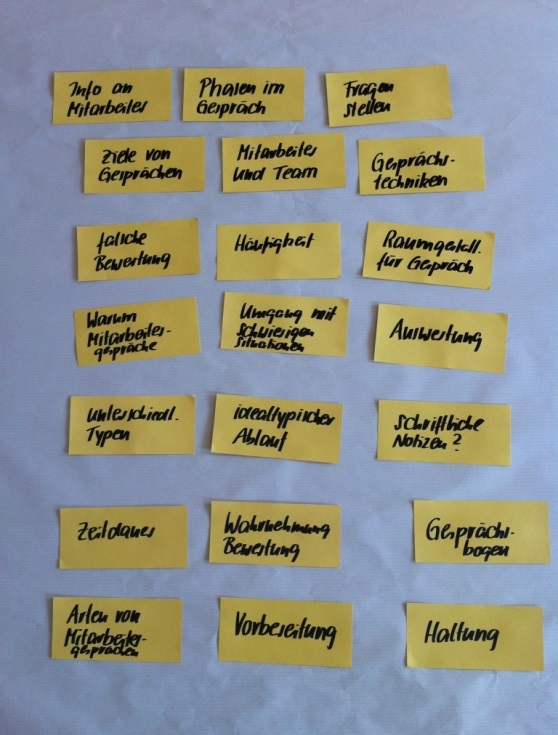 Info an
Mitarbeiter
Phasen im
Gespräch
Fragen
stellen
Ziele von
Gesprächen
Mitarbeiter
und Team
Gesprächs-
techniken
falsche
Bewertung
Häufigkeit
Raumgestalt.
für Gespräch
Warum
Mitarbeiter-
gespräche
Umgang mit
schwierigen
Situationen
Auswertung
unterschiedl.
Typen
idealtypischer
Ablauf
schriftliche
Notizen?
Zeitdauer
Wahrnehmung
Bewertung
Gesprächs-
bogen
Arten von
Mitarbeiter-
gesprächen
Vorbereitung
Haltung